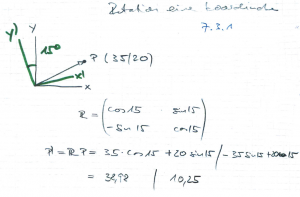 Rotation eine Koordinate
7.3.1
y'
y
15°
P (35/20)
x'
x
R = (cos 15 sin 15
-sin 15 cos 15)
P' = R P = 35 · cos 15 + 20 sin 15 / -35 sin 15 + 20 cos 15
= 38,98 / 10,25